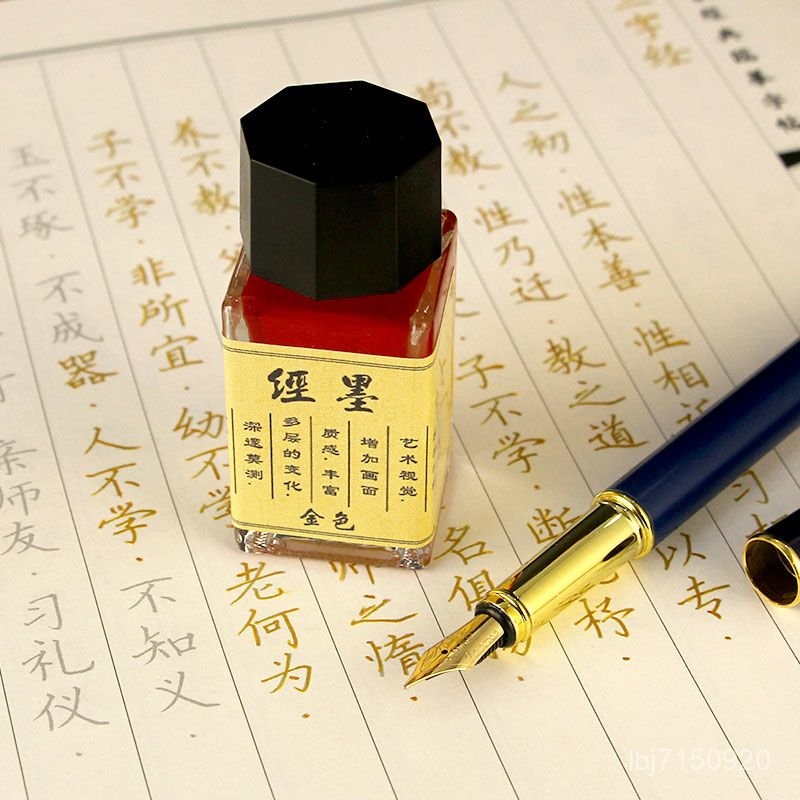 三字经
人之初·性本善·性相近 习
苟不教·性乃迁·教之道 以专·
子不学·断 杼·
名俱扬·
养不教·父 师之惰·
子不学·非所宜·幼不学 老何为·
玉不琢·不成器·人不学·不知义·
亲师友·习礼仪·
經墨
艺术视觉·
增加画面
质感·丰富
多层的变化·
深邃莫测·
金色
lbj7150920